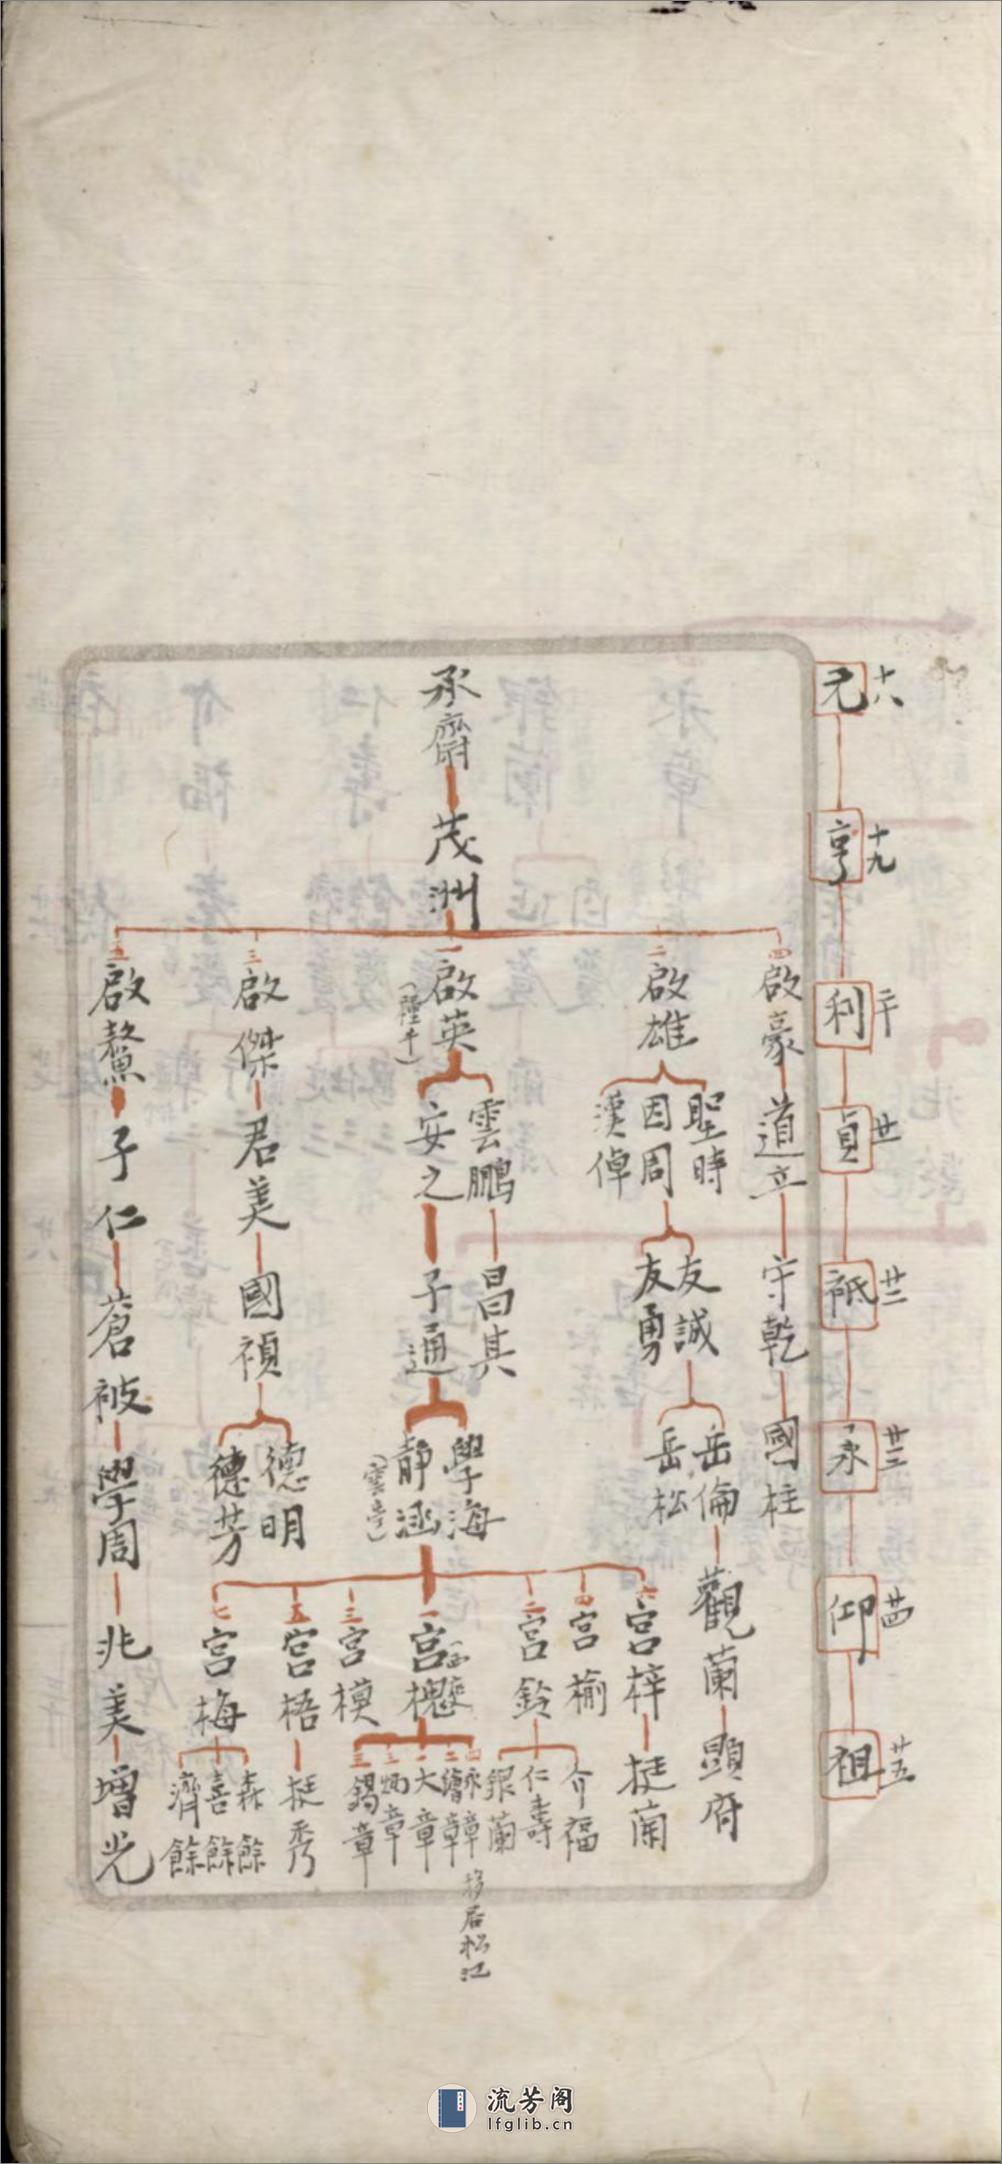 元 十八
亨 十九
利 二十
貞 廿
祗 廿二
永 廿三
仰 廿四
祖 廿五
承齋
茂洲
四 啟豪
道立
守乾
國柱
二 啟雄
聖時
因周
漢倬
友誠
友勇
岳倫
岳松
觀蘭
顯府
一 啟英
雲鵬
安之
昌其
子通
學海
靜涵
六 宮梓
挺蘭
四 宮榆
二 宮鈴
介福
仁壽
銀蘭
一 宮槐
四 永章
移居松江
二 繪章
一 大章
炳章
三 錫章
三 宮模
五 宮梧
挺秀
七 宮梅
森餘
喜餘
濟餘
三 啟傑
君美
國禎
德明
德芳
五 啟鰲
子仁
蒼被
學周
兆美
增光
流芳阁
lfglib.cn